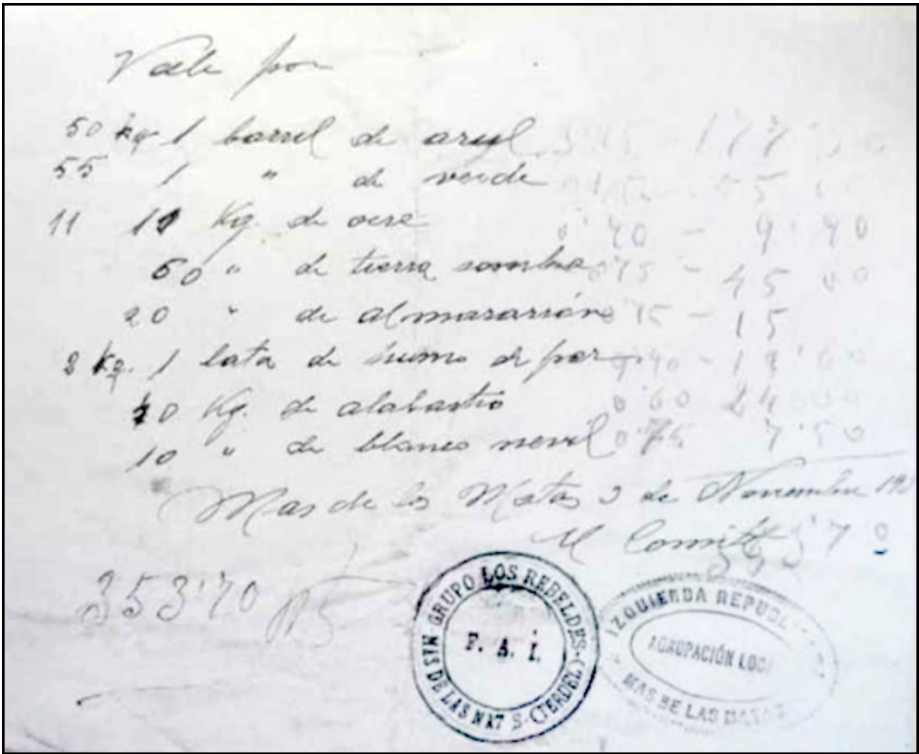 Vale por
50 kg 1 barril de azul 177'50
55 1 " de verde
11 11 Kg. de ocre 0'90 - 9'90
60 " de tierra sombra 0'75 - 45 00
20 " de almazarrón 0'75 - 15
2 kg. 1 lata de humo de pez - 19'00
40 Kg. de alabastro 0'60 24 000
10 " de blanco nevil 0'75 7'50
Mas de las Matas 3 de Noviembre
El Comité
353'70
GRUPO LOS REBELDES
F. A. I.
MAS DE LAS MAT S - (TERUEL)
IZQUIERDA REPUBL
AGRUPACIÓN LOCA
MAS DE LAS MATAS